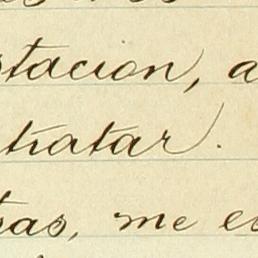 tacion, a
tratar.
ras, me es